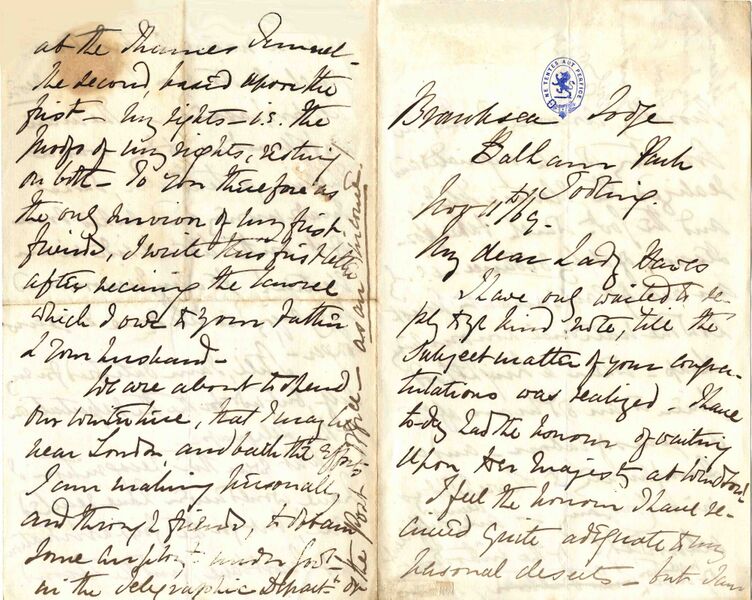 NE TENTES AUT PERFICE
Branksea Lodge
Balham Park
Tooting.
Nov 11th/69.
My dear Lady Hawes
I have only waited to re-
ply to yr kind note, till the
Subject matter of your congra-
tulations was realized. I have
to-day had the honour of waiting
upon Her Majesty at Windsor.
I feel the honour I have re-
ceived quite adequate to my
personal deserts – but I am
at the Thames Tunnel –
the second, based upon the
first – My rights – i.e. the
proofs of my rights, resting
on both – To you therefore as
the only survivor of my first
friends, I write this first letter
after receiving the honour
which I owe to your Father
& your husband –
We are about to spend
our winter here, that I may be
near London and
I am making personally
and through friends, to obtain
some employt under Govt –
in the Telegraphic Departt or
the Post Office – as an income.